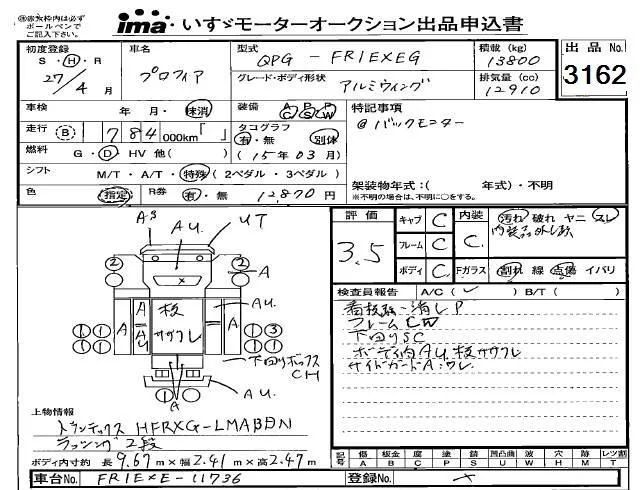 ◎赤太枠内は必ず
ボールペンで
ご記入下さい。
ima いすゞモーターオークション出品申込書
初度登録 S・H・R 27/4月
車名 プロフィア
型式 QPG - FR1EXEG
積載 (kg) 13800
グレード・ボディ形状 アルミウィング
排気量 (cc) 12910
出品No. 3162
車検 年 月・抹消
装備 A/C P/S P/W
特記事項
走行 B 1784 000km「 」
タコグラフ 有・無 別体
@バックモニター
燃料 G・D・HV 他( )
(15年03月)
シフト M/T・A/T・特殊(2ペダル・3ペダル)
架装物年式:( 年式)・不明
※不明の場合は、不明に○をする。
色 指定 R券 有・無 12,870円
評価 3.5
キャブ C
フレーム C
ボディ C
内装 C
汚れ 破れ ヤニ スレ
Fガラス 割れ 線 点傷 イパリ
検査員報告 A/C(✓) B/T( )
看板跡・消しP
フレームCW
下回りSC
ボデー内AU、板ササクレ
サイドガードA・ワレ
AS
AU
UT
2
2
A
X
A
A
AU
板
ササクレ
AU
A
1 1
1 1
1 3
1 1
下回りボックス
CH
AU
A
上物情報
トランテックス HFRXG-LMABDN
ラッシング2段
ボディ内寸約 長9.67m×幅2.41m×高2.47m
記号 傷A 板金B 腐C 塗P 錆S 凹凸曲U 波W 穴H 跡M レツ割T
車台No. FR1EXE-11736
登録No.